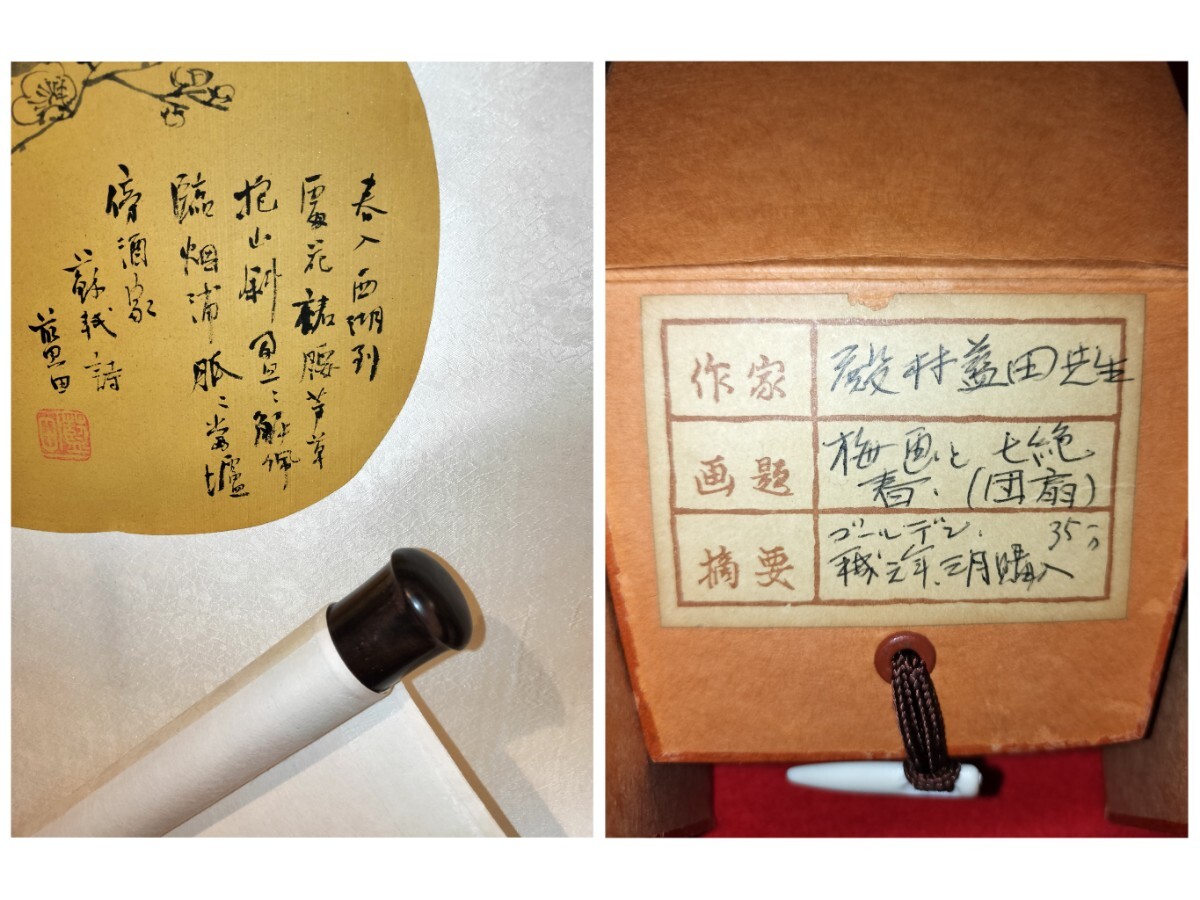 春入西湖到
處花裙腰芳草
抱山斜盈〻解佩
臨烟浦脈〻當壚
傍酒家
蘇軾詩
藍田
作家 殿村藍田先生
画題 梅画と七絶
春、(団扇)
摘要 ゴールデン、 35
平成元年、三月購入